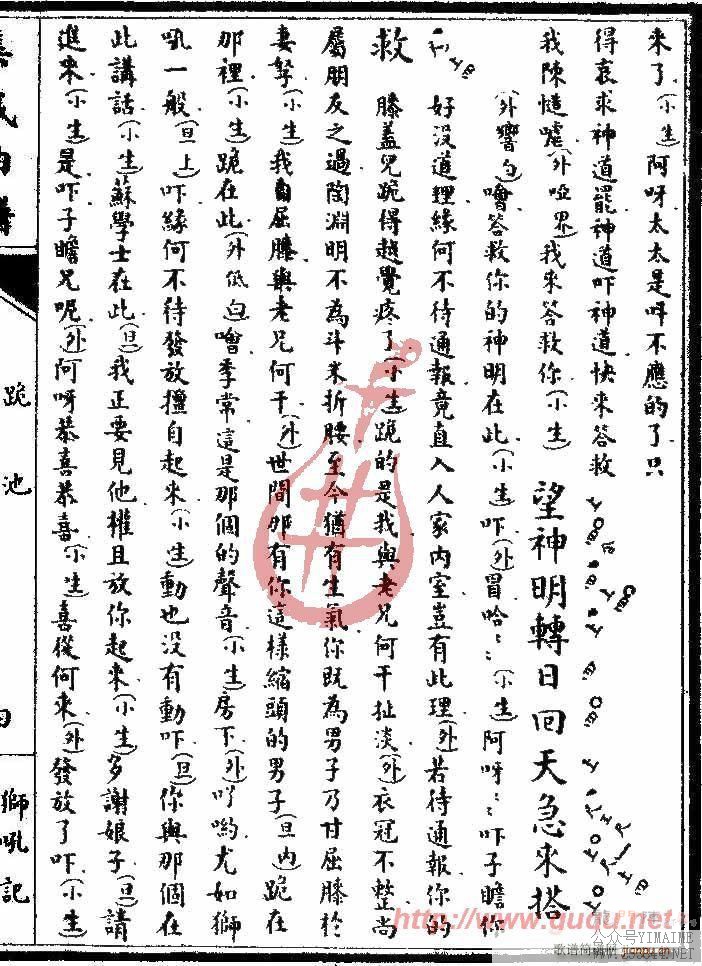 來了(小生)阿呀太太是呌不應的了只
得哀求神道罷神道吓神道快來答救
我陳慥噓(外啞界)我來答救你(小生)望神明轉日回天急來搭
(外響白)噲答救你的神明在此(小生)吓(外)冒哈〻〻(小生)阿呀〻〻吓子瞻你
好沒道理緣何不待通報竟直入人家內室豈有此理(外)若待通報你的
救
膝蓋兒跪得越覺疼了(小生)跪的是我與老兄何干扯淡(外)衣冠不整尚
屬朋友之過陶淵明不為斗米折腰至今猶有生氣你既為男子乃甘屈膝於
妻孥(小生)我自屈膝與老兄何干(外)世間那有你這樣縮頭的男子(旦內)跪在
那裡(小生)跪在此(外低白)噲季常這是那個的聲音(小生)房下(外)吖喲尤如獅
吼一般(旦上)吓緣何不待發放擅自起來(小生)動也沒有動吓(旦)你與那個在
此講話(小生)蘇學士在此(旦)我正要見他權且放你起來(小生)多謝娘子(旦)請
進來(小生)是吓子瞻兄呢(外)阿呀恭喜恭喜(小生)喜從何來(外)發放了吓(小生)
集成曲譜
跪池
獅吼記
http://www.guqu.net
公众号YIMAIME
歌谱简谱网 jianpu.cn